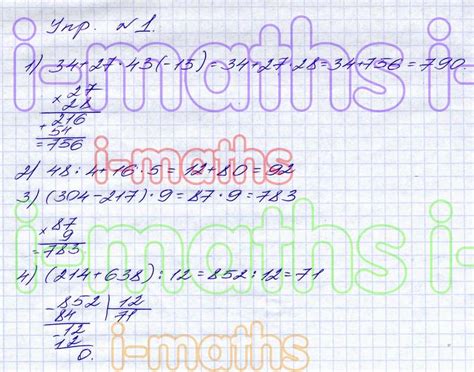 Упр. №1.
1) 34+27·43(-15)=34+27·28=34+756=790
× 27
28
+ 216
54
=756
2) 48:4+16·5=12+80=92
3) (304-217)·9=87·9=783
× 87
9
=783
4) (214+638):12=852:12=71
- 852 | 12
84 71
- 12
12
0.
i-maths i-
i-maths
i-maths i-
i-maths